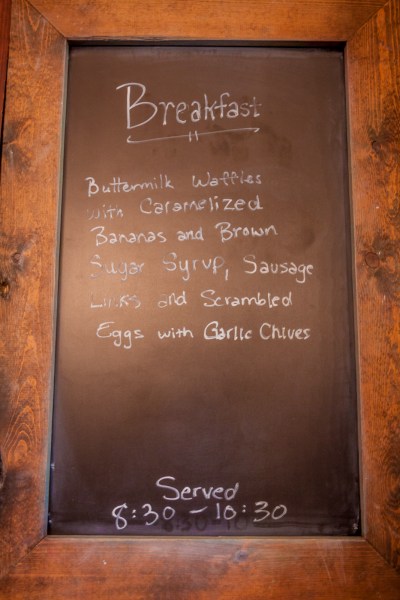 Breakfast
Buttermilk Waffles
with Caramelized
Bananas and Brown
Sugar Syrup, Sausage
Links and Scrambled
Eggs with Garlic Chives
Served
8:30 - 10:30